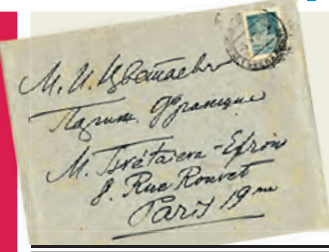 М. И. Цветаевой
Париж. Франция
M. Tsvétaeva-Efron
8. Rue Rouvet
Paris 19me